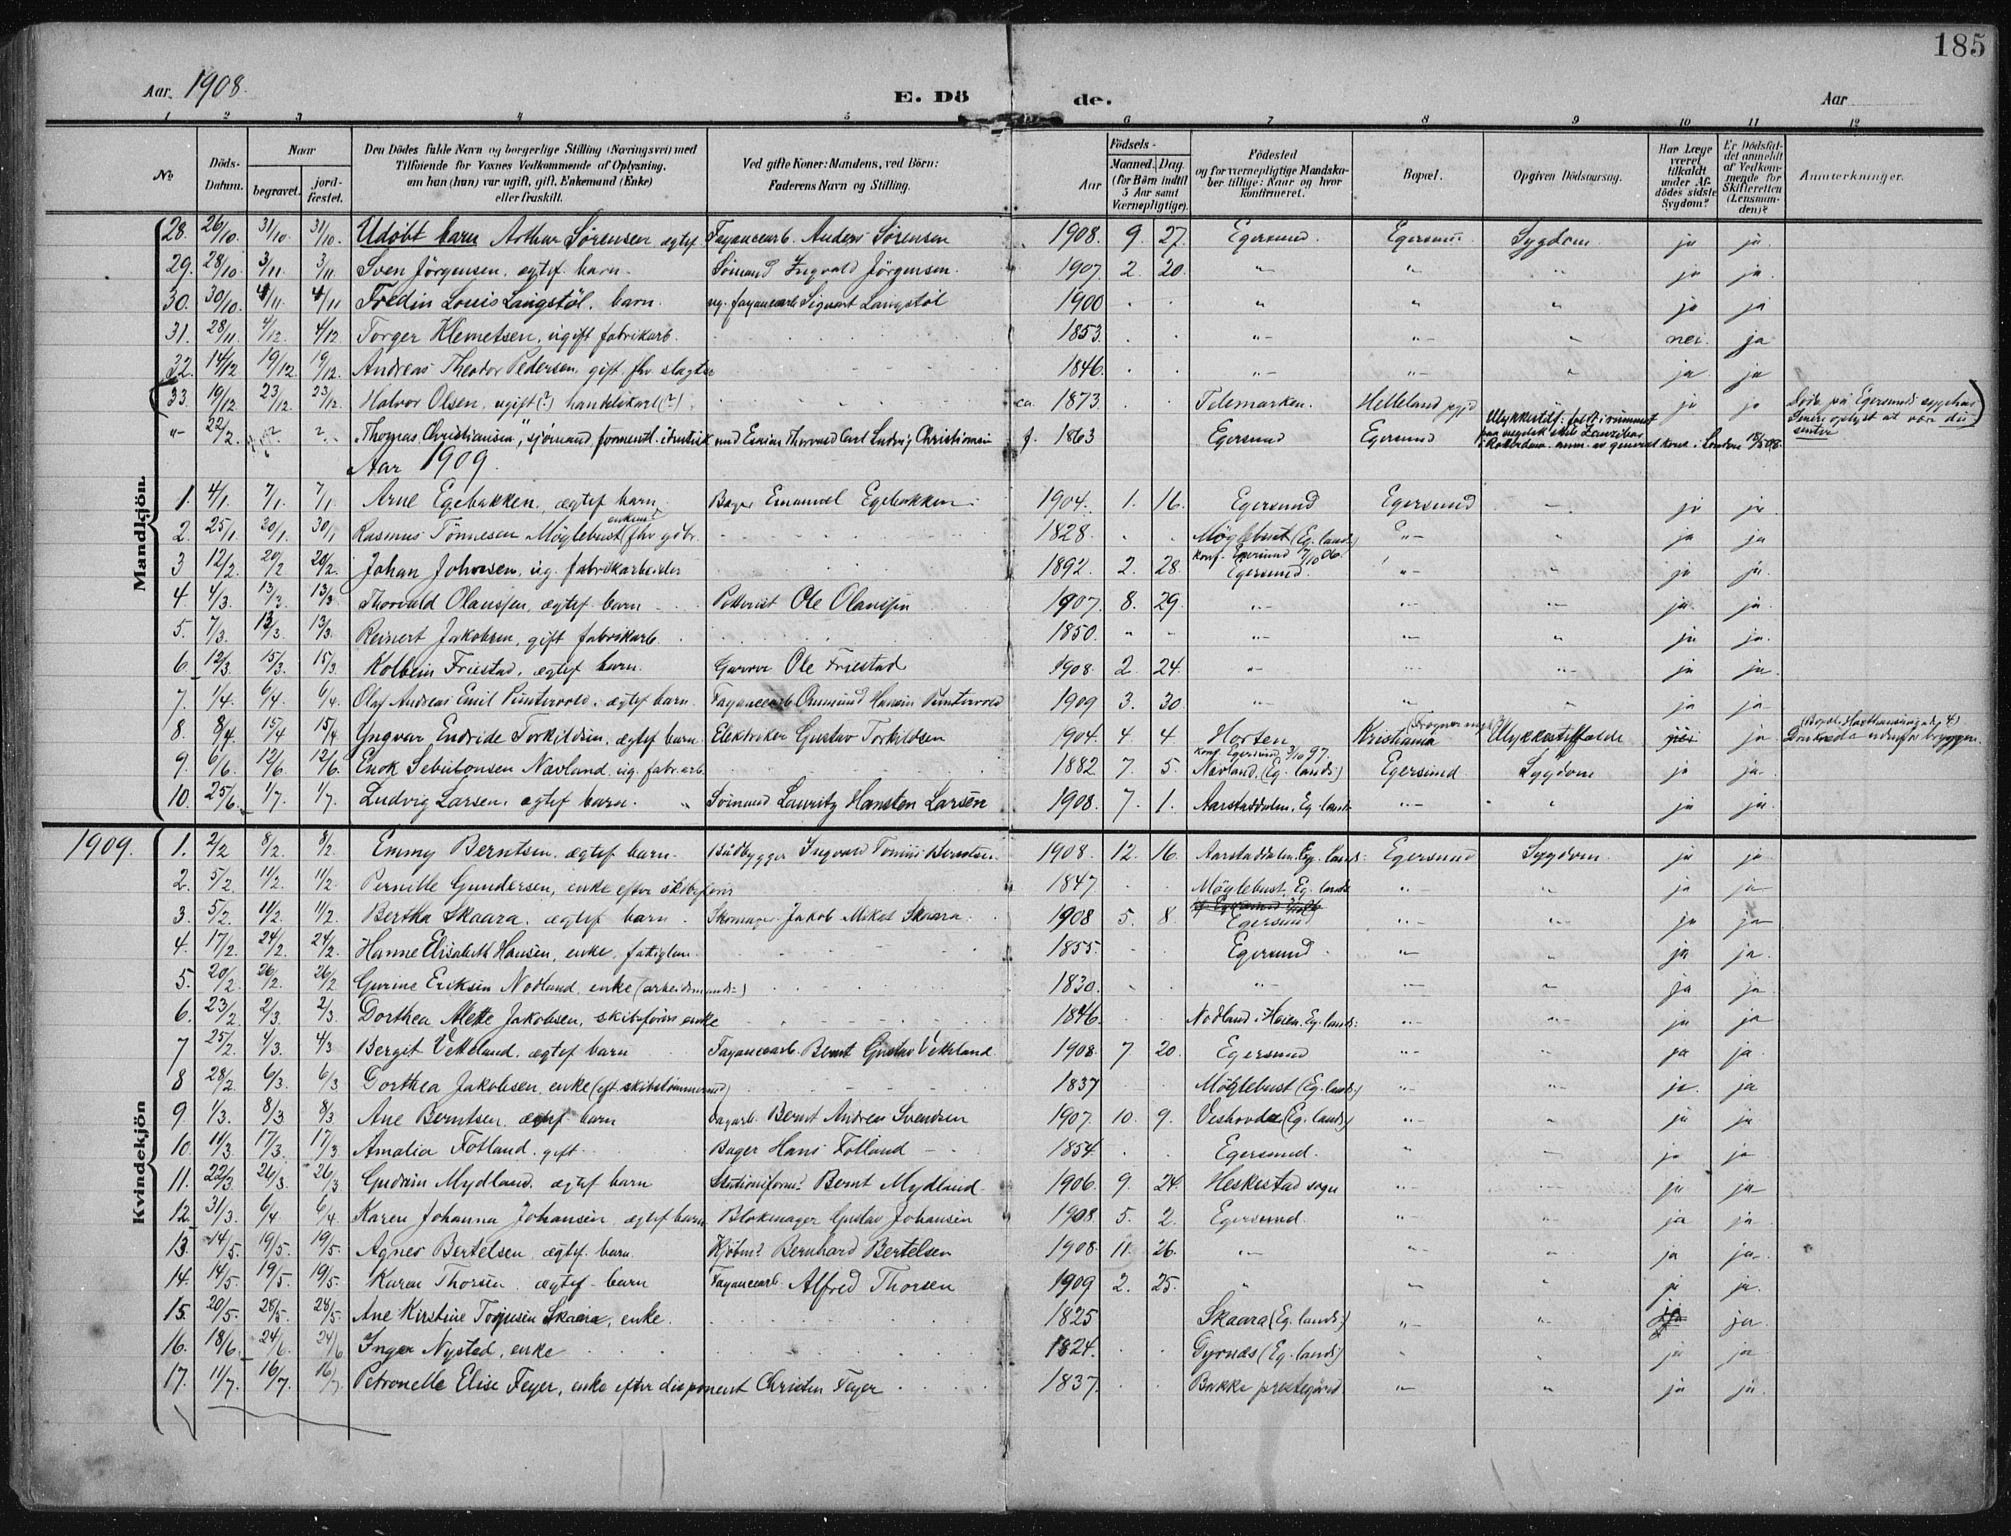 185
Aar 1908.
E. Dö de.
Aar
1 2 3 4 5 6 7 8 9 10 11 12
No
Döds-Datum.
Naar
begravet.
jord-fæstet.
Den Dödes fulde Navn og borgerlige Stilling (Næringsvei) med
Tilföiende for Voxnes Vedkommende af Oplysning,
om han (hun) var ugift, gift, Enkemand (Enke)
eller fraskilt.
Ved gifte Koner: Mandens, ved Börn:
Faderens Navn og Stilling.
Födsels-
Aar
Maaned. Dag.
(for Börn indtil
5 Aar samt
Værnepligtige).
Födested
og for værnepligtige Mandska-
ber tillige: Naar og hvor
konfirmeret.
Bopæl.
Opgiven Dödsaarsag.
Har Læge
været
tilkaldt
under Af-
dödes sidste
Sygdom?
Er Dödsfal-
det anmeldt
af Vedkom-
mende for
Skifteretten
(Lensman-
den)?
Anmærkninger.
Mandkjön.
28. 26/10. 31/10. 31/10. Udöbt barn Arthur Sørensen ægtef. Fayancearb. Anders Sörensen 1908. 9 27. Egersund. Egersund Sygdom ja ja.
29. 28/10 3/11 3/11. Sven Jörgensen, ægtef. barn. Sömand Ingvald Jörgensen. 1907. 2. 20. " " " ja ja.
30. 30/10. 4/11. 4/11 Fredin Louis Langstöl. barn. ug. fayancearb Sigvart Langstöl 1900 " " " ja ja
31. 28/11. 4/12. 4/12 Torger Klemetsen, ugift fabrikarb. 1853. " " " nei. ja
32. 14/12 19/12. 19/12. Andreas Theodor Pedersen, gift. fhv slagter 1846. " " " ja. ja
33. 19/12. 23/12. 23/12. Halvor Olsen, ugift(?) handelskarl(?). ca. 1873. Telemarken. Helleland pgjd ja ja Döde på Egersunds sygehus
" 22/2. ? Thomas Christiansen, sjømand, forment. f. 1863 Egersund Egersund
Aar 1909.
1. 4/1. 7/1. 7/1. Arne Egebakken, ægtef. barn. Bager Emanuel Egebakken 1904. 1. 16. Egersund Egersund ja ja.
2. 25/1. 30/1. 30/1 Rasmus Tönnesen Möglebust (fhv gdbr. enkem. 1828. Möglebust (Eg. lands.) " ja ja
3 12/2. 20/2 20/2. Johan Johnsen, ug. fabrikarbeider 1892. 2. 28. konf. Egersund 7/10 06. Egersund. " " ja ja.
4. 4/3. 13/3 13/3. Thorvald Olaussen, ægtef. barn Potterist Ole Olaussen 1907. 8. 29. " " " ja. ja.
5. 7/3. 13/3 13/3. Reinert Jakobsen, gift fabrikarb. 1850. " " " " " ja ja.
6 12/3. 15/3. 15/3 Kolbein Friestad, ægtef. barn. Garver Ole Friestad 1908. 2. 24. " " " ja ja.
7. 1/4. 6/4. 6/4. Olaf Andreas Emil Puntervold. ægtef. barn. Fayancearb Puntervold 1909 3. 30. " " " ja ja
8. 8/4. 15/4 15/4. Yngvar Endride Torkildsen, ægtef. barn. Elektriker Gustav Torkildsen 1904. 4 4 Horten Kristiania Ulykkestilfælde nei ja
9. 6/6. 12/6 12/6. Enok Sebulonsen Navland. ug. fabr.arb. 1882 7. 5. konf. Egersund 3/10 97. Navland. (Eg. lands:) Egersund Sygdom ja ja.
10. 25/6. 1/7. 1/7. Ludvig Larsen, ægtef. barn. Sömand Lauritz Hansten Larsen 1908. 7. 1. Aarstaddalen, Eg. lands. " " ja ja.
1909.
Kvindekjön
1. 2/2 8/2. 8/2. Emmy Berntsen, ægtef. barn. Baadbygger Ingvard Berntsen 1908. 12. 16. Aarstaddalen. Eg. lands: Egersund Sygdom. ja ja.
2. 5/2. 11/2. 11/2. Pernille Gundersen, enke efter skibsförer 1847. Möglebust, Eg. lands " " ja ja
3. 5/2. 11/2. 11/2. Bertha Skaara, ægtef. barn. Skomager Jakob Mikal Skaara. 1908 5. 8. Egersund " " ja ja
4. 17/2. 24/2. 24/2. Hanne Elisabeth Hansen, enke, fattiglem. 1855. Egersund. " " ja ja.
5. 20/2. 26/2. 26/2 Gurine Eriksen Nodland. enke (arbeidsmands-) 1830. " " " ja ja.
6. 23/2. 2/3. 2/3. Dorthea Mette Jakobsen, skibsförers enke 1846. Nodland i Heien. Eg. lands: " " ja ja
7 25/2. 4/3. 4/3 Bergit Vetteland. ægtef. barn Fayancearb. Bernt Gustav Vetteland 1908. 7 20. Egersund " " ja ja.
8 28/2. 6/3. 6/3 Dorthea Jakobsen, enke (eft. skibstömmermd) 1837 Möglebust (Eg. lands:) " " ja. ja
9. 1/3. 8/3 8/3. Ane Berntsen, ægtef barn Bernt Andreas Svendsen 1907. 10. 9. (Eg. lands:) " " ja ja.
10. 11/3. 17/3. 17/3 Amalia Fotland. gift Bager Hans Fotland 1854. Egersund. " " ja ja
11. 22/3 26/3 26/3 Gudrun Mydland. ægtef barn Stationsform. Bernt Mydland 1906. 9. 24. Heskestad sogn " " ja ja
12. 31/3. 6/4. 6/4. Karen Johanna Johansen, ægtef barn. Blokmager Gustav Johansen 1908. 5. 2. Egersund. " " ja ja.
13. 14/5. 19/5. 19/5. Agnes Bertelsen, ægtef. barn. Kjöbmd Bernhard Bertelsen 1908. 11. 26. " " " ja ja.
14. 14/5. 19/5. 19/5. Karen Thorsen. ægtef. barn Fayancearb. Alfred Thorsen 1909 2. 25. " " " ja ja.
15. 20/5. 28/5. 28/5. Ane Kirstine Skaara, enke. 1825 Skaara (Eg. lands:) " " ja ja.
16. 18/6. 24/6. 24/6 Inger Nystad, enke 1824. Gyrnæs (Eg. lands:) " " ja ja
17. 11/7. 16/7. 16/7. Petronelle Elise Feyer, enke efter disponent Christen Feyer 1837 Bakke prestegjeld " " ja ja.